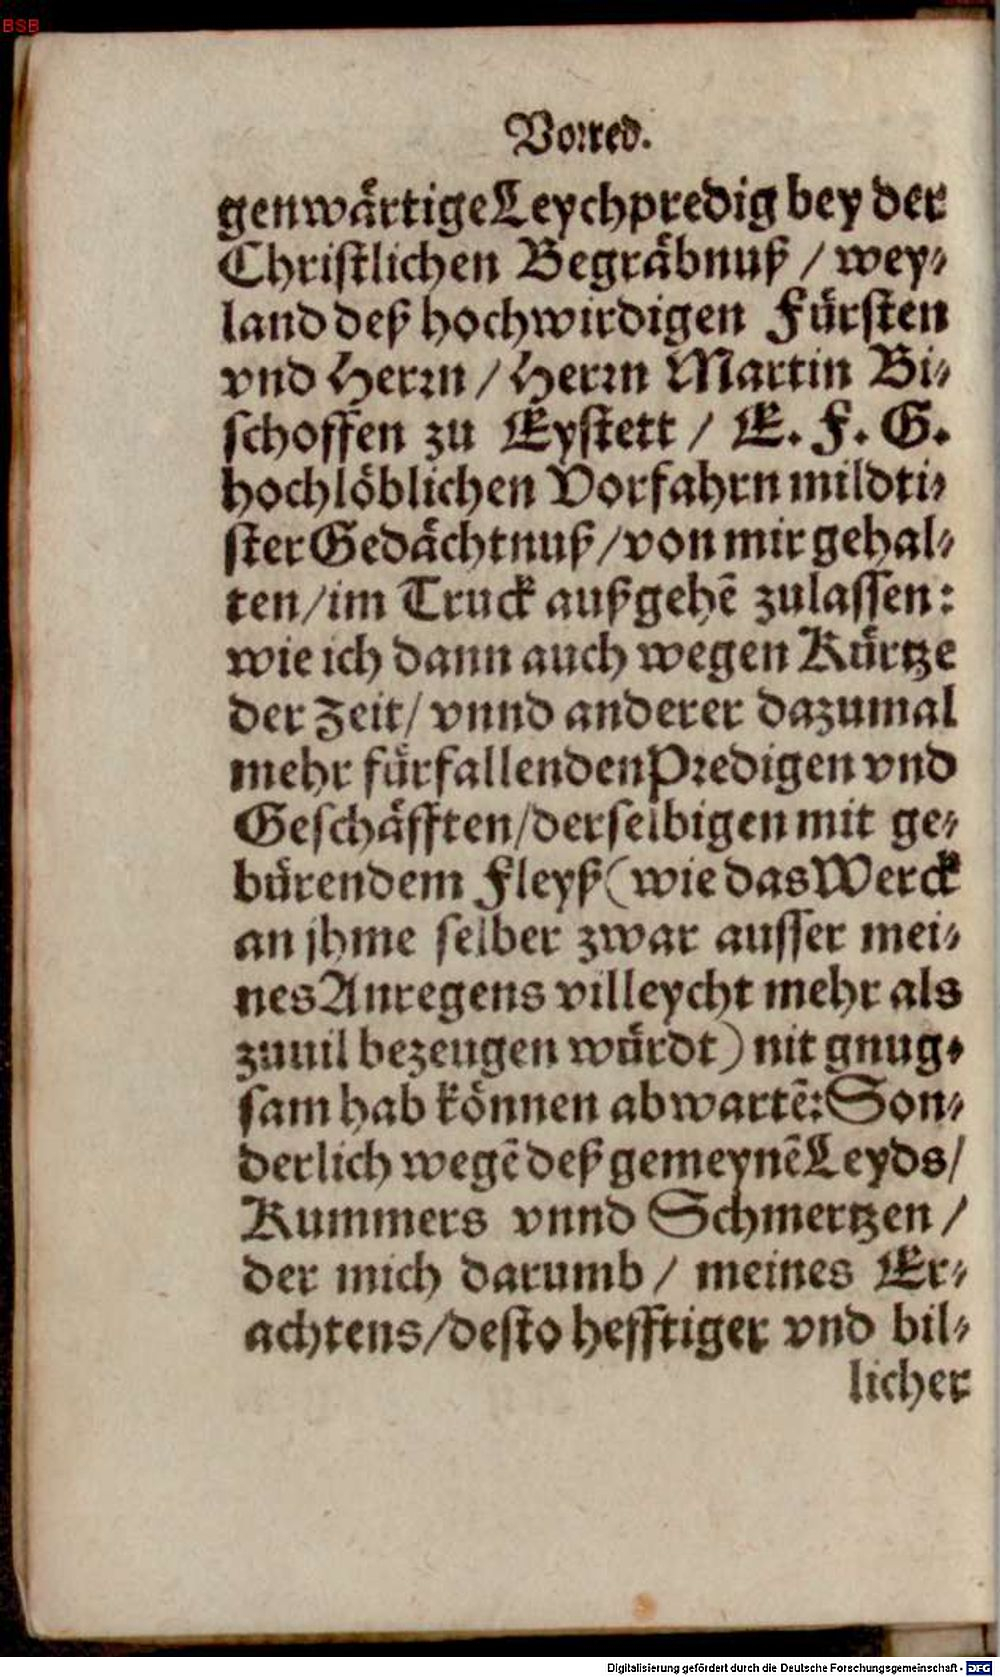 BSB
Vorred.
genwärtige Leychpredig bey der
Christlichen Begräbnuß / wey-
land deß hochwirdigen Fürsten
vnd Herrn / Herrn Martin Bi-
schoffen zu Eystett / E. F. G.
hochlöblichen Vorfahrn mildti-
ster Gedächtnuß / von mir gehal-
ten / im Truck außgehē zulassen:
wie ich dann auch wegen Kürtze
der Zeit / vnnd anderer dazumal
mehr fürfallenden Predigen vnd
Geschäfften / derselbigen mit ge-
bürendem Fleyß (wie das Werck
an jhme selber zwar ausser mei-
nes Anregens villeycht mehr als
zuuil bezeugen würdt) nit gnug-
sam hab können abwartē: Son-
derlich wegē deß gemeynē Leyds /
Kummers vnnd Schmertzen /
der mich darumb / meines Er-
achtens / desto hefftiger vnd bil-
licher
Digitalisierung gefördert durch die Deutsche Forschungsgemeinschaft - DFG